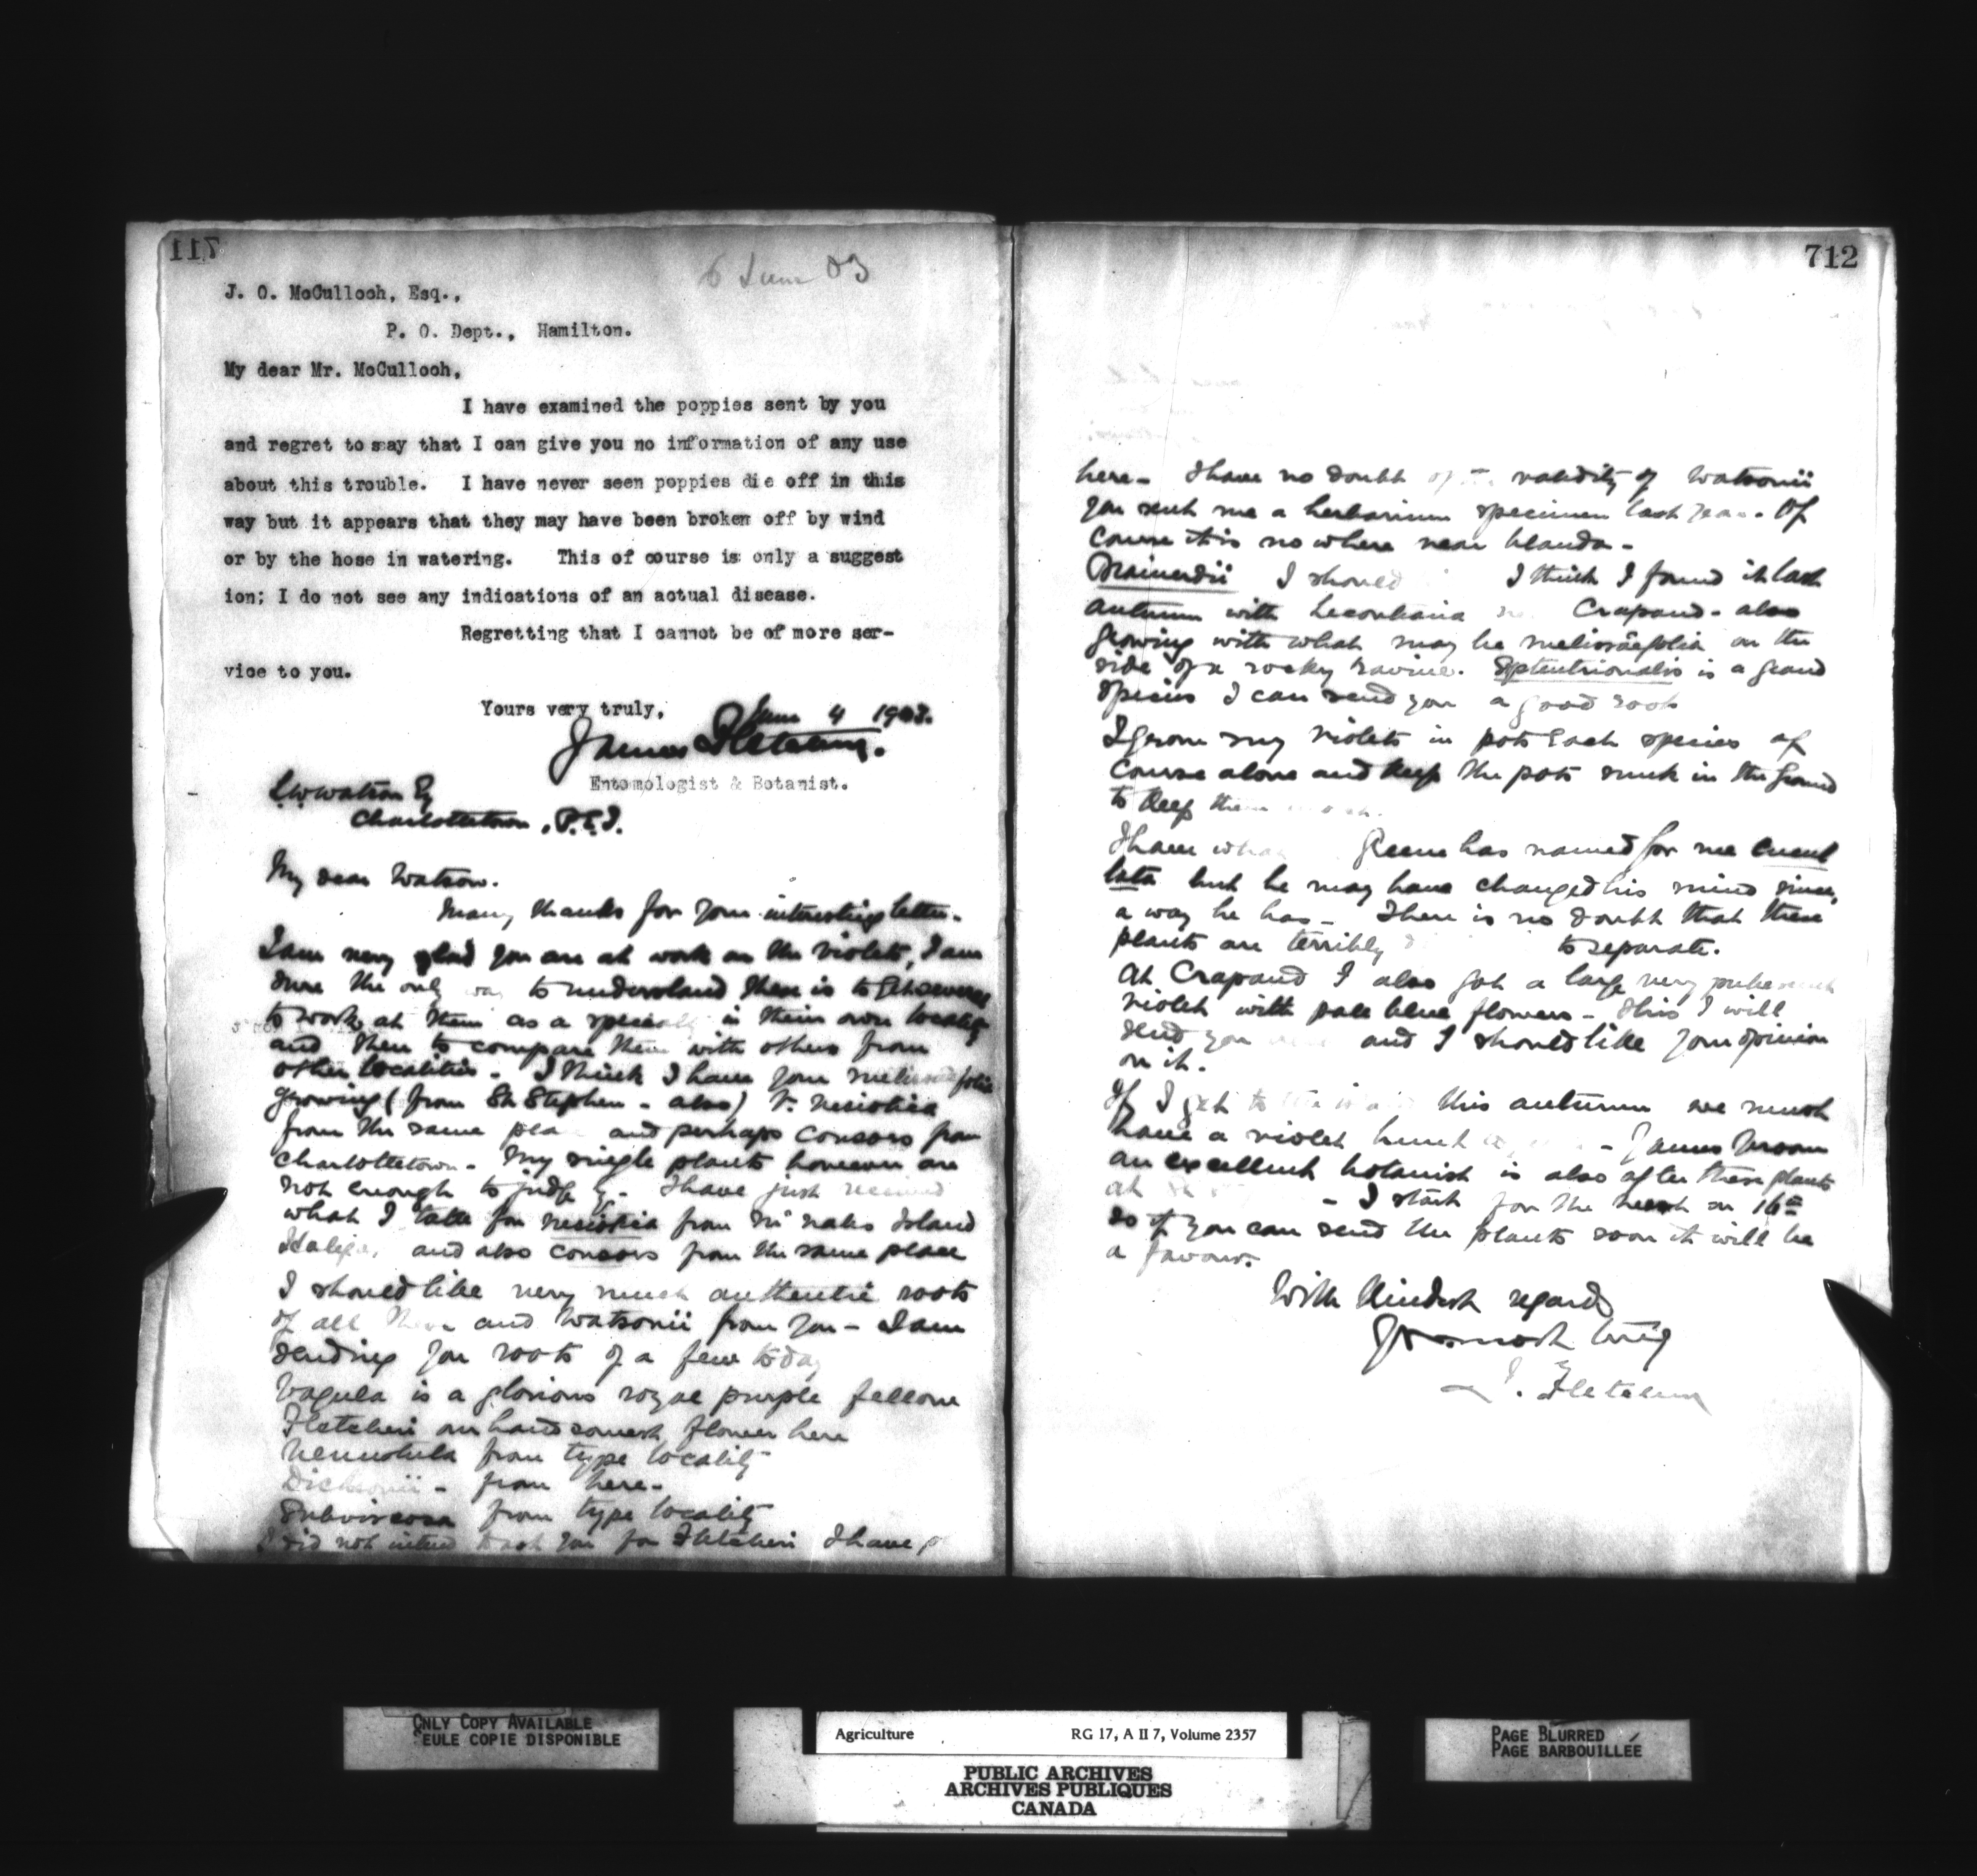 711
6 June 03
J. O. McCulloch, Esq.,
P. O. Dept., Hamilton.
My dear Mr. McCulloch,
I have examined the poppies sent by you
and regret to say that I can give you no information of any use
about this trouble. I have never seen poppies die off in this
way but it appears that they may have been broken off by wind
or by the hose in watering. This of course is only a suggest
ion; I do not see any indications of an actual disease.
Regretting that I cannot be of more ser-
vice to you.
Yours very truly,
James Fletcher.
Entomologist & Botanist.
June 4 1903.
L.W. Watson Esq
Charlottetown, P.E.I.
My dear Watson.
Many thanks for your interesting letter.
I am very glad you are at work on the violets, I am
sure the only way to understand these is to get several
to work at them as a specialty in their own locality
and then to compare them with others from
other localities. I think I have your melissaefolia
growing (from St Stephen - also) V. nesiotica
from the same place and perhaps consors from
Charlottetown - My single plants however are
not enough to judge by. I have just received
what I take for nesiotica from Island
and also consors from the same place
I should like very much authentic roots
of all these and Watsonii from you - I am
sending you roots of a few today
Vagula is a glorious royal purple fellow
Fletcheri our handsomest flower here
Venustula from type locality
Dicksonii - from here -
Subviscosa from type locality
I did not intend to ask you for Fletcheri I have
712
here - I have no doubt of the validity of Watsonii
you sent me a herbarium specimen last year. Of
course it is no where near blanda -
Brainerdii I should I think I found it last
autumn with Leconteana Crapaud - also
growing with what may be melissaefolia on the
side of a rocky ravine. Septentrionalis is a grand
species I can send you a good root
I grow my violets in pots each species of
course alone and keep the pots sunk in the ground
to keep them
I have what Greene has named for me cucul
lata but he may have changed his mind since,
a way he has - There is no doubt that these
plants are terribly to separate.
At Crapaud I also got a large very pubescent
violet with pale blue flowers - this I will
send you and I should like your opinion
on it.
If I get to this autumn we must
have a violet hunt - James Vroom
an excellent botanist is also after these plants
at - I start for the west on 16th
so if you can send the plants soon it will be
a favour.
With kindest regards
Yours most truly
J. Fletcher
ONLY COPY AVAILABLE
SEULE COPIE DISPONIBLE
Agriculture RG 17, A II 7, Volume 2357
PUBLIC ARCHIVES
ARCHIVES PUBLIQUES
CANADA
PAGE BLURRED
PAGE BARBOUILLÉE